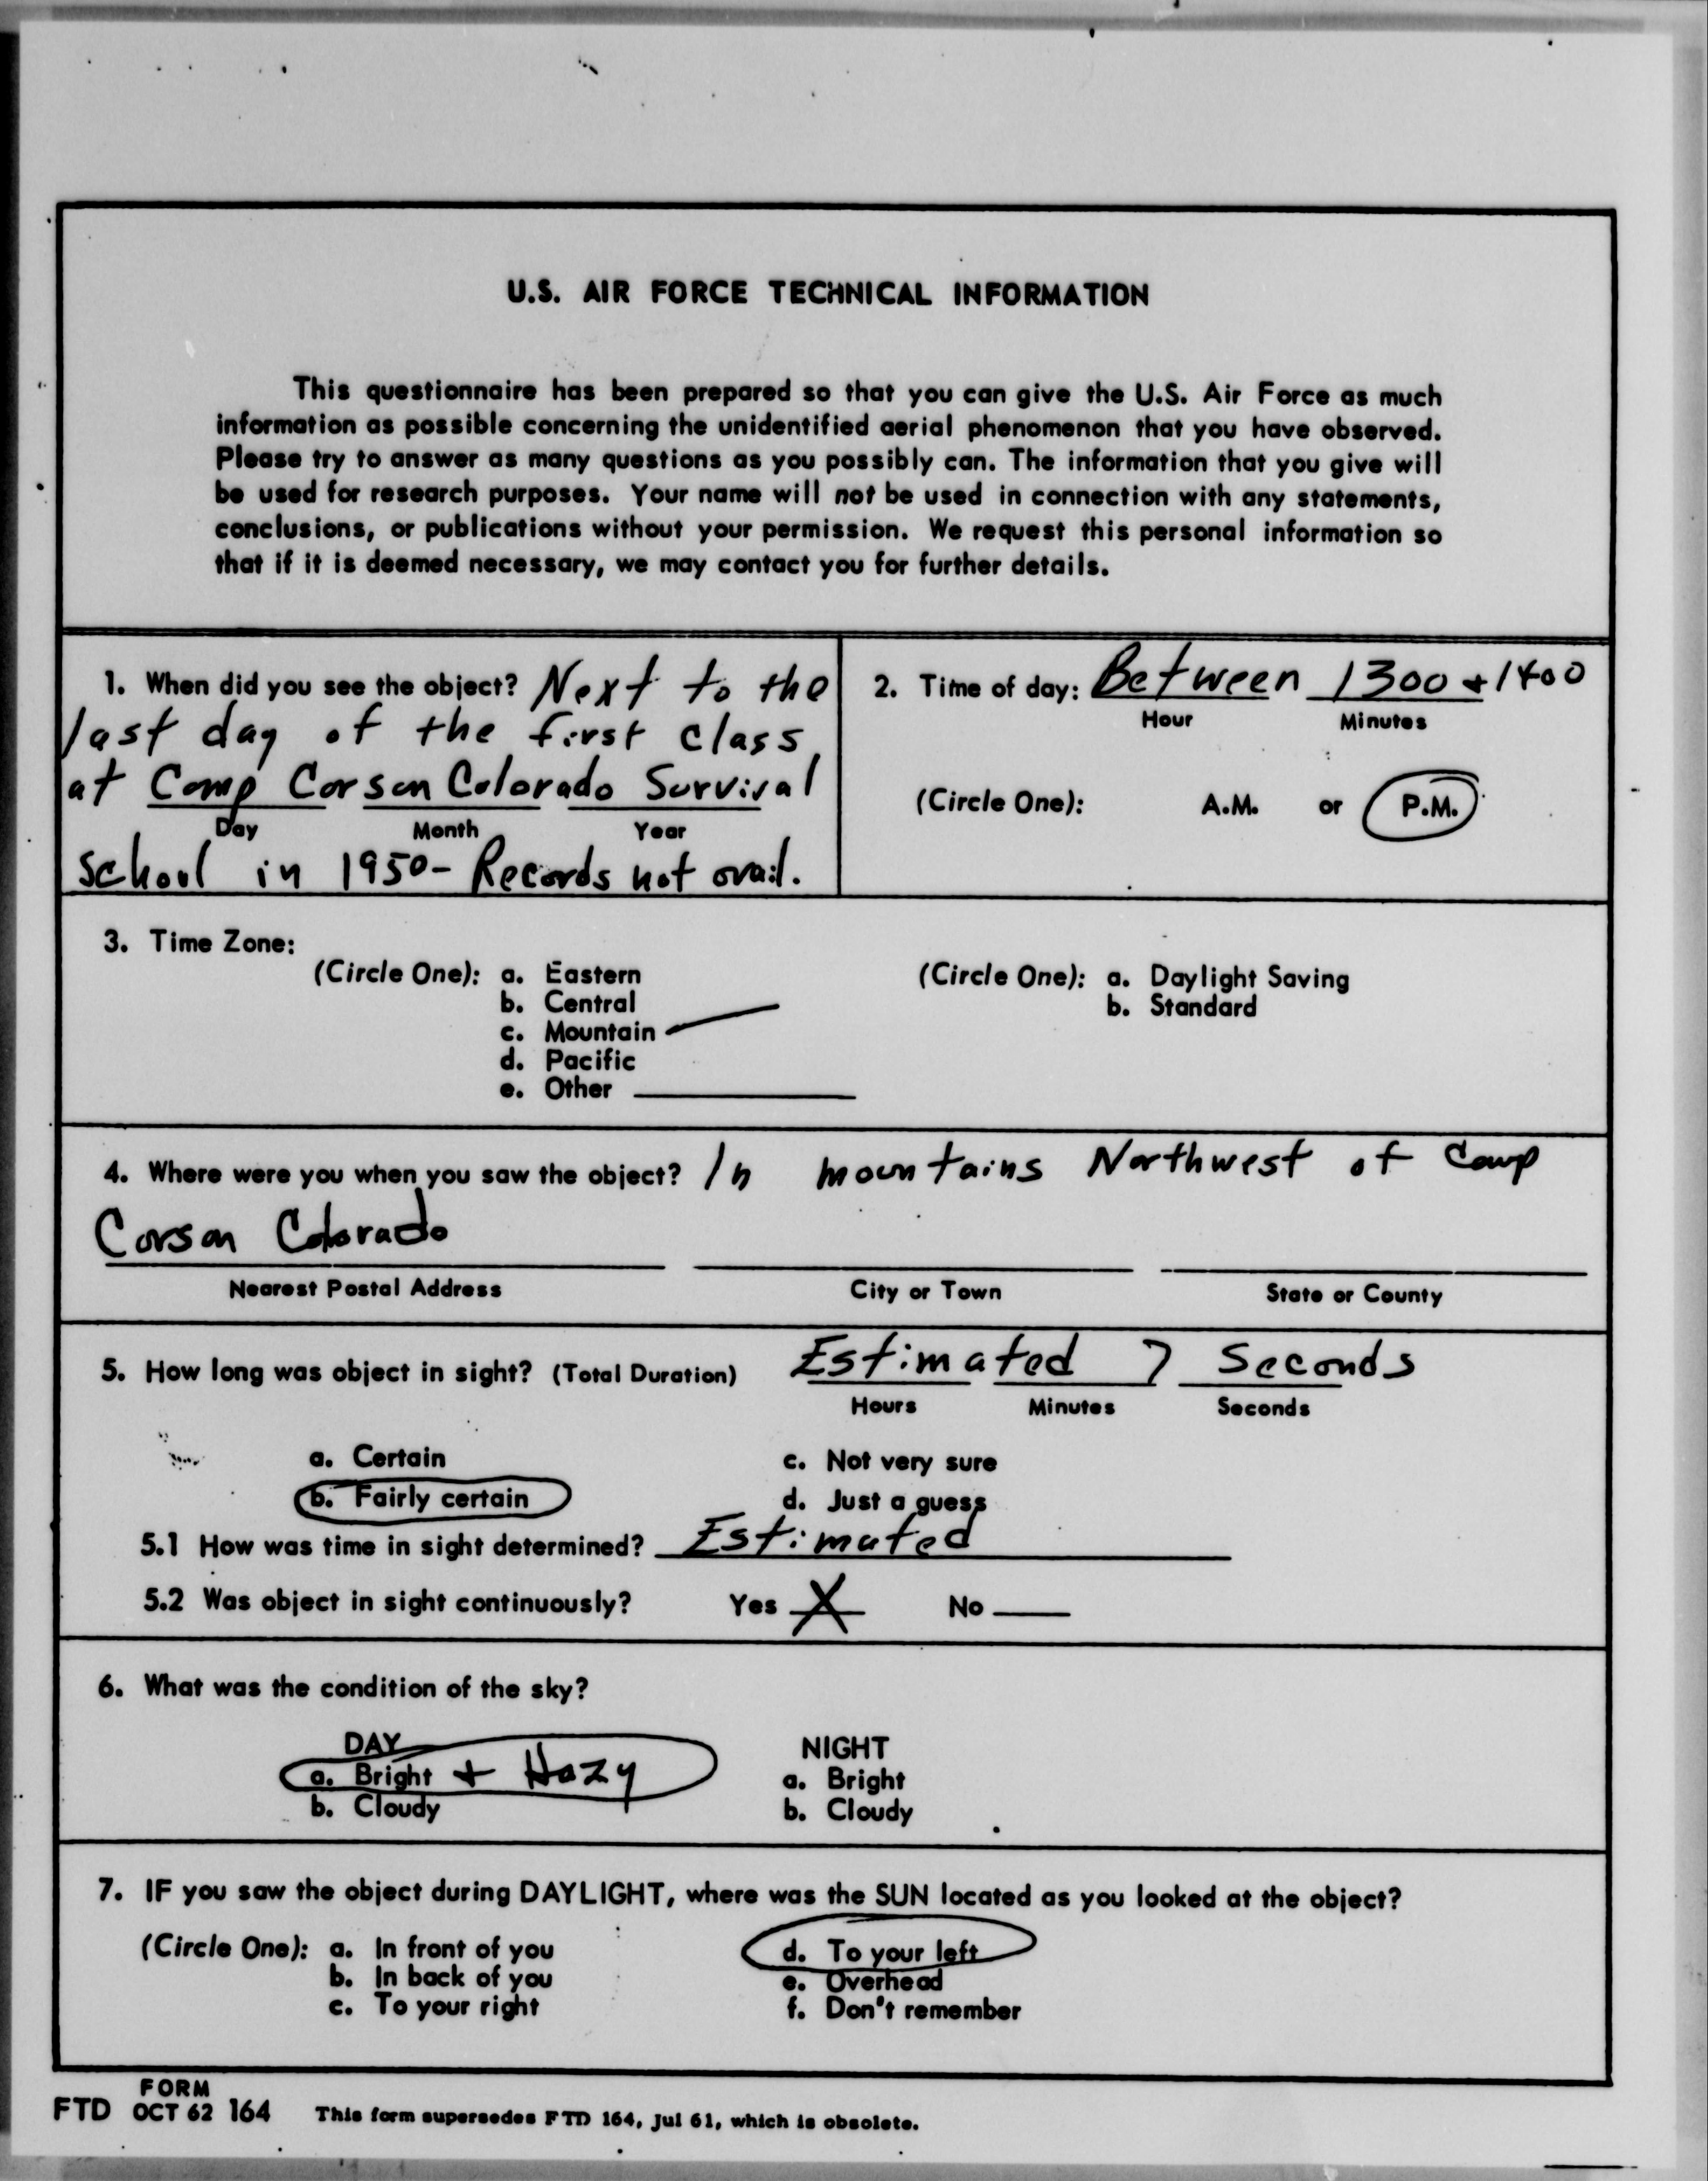 U.S. AIR FORCE TECHNICAL INFORMATION
This questionnaire has been prepared so that you can give the U.S. Air Force as much
information as possible concerning the unidentified aerial phenomenon that you have observed.
Please try to answer as many questions as you possibly can. The information that you give will
be used for research purposes. Your name will not be used in connection with any statements,
conclusions, or publications without your permission. We request this personal information so
that if it is deemed necessary, we may contact you for further details.
1. When did you see the object? Next to the
last day of the first class
at Camp Carson Colorado Survival
Day Month Year
school in 1950- Records not avail.
2. Time of day: Between 1300 + 1400
Hour Minutes
(Circle One): A.M. or P.M.
3. Time Zone:
(Circle One): a. Eastern
b. Central
c. Mountain
d. Pacific
e. Other
(Circle One): a. Daylight Saving
b. Standard
4. Where were you when you saw the object? In mountains Northwest of Camp
Carson Colorado
Nearest Postal Address City or Town State or County
5. How long was object in sight? (Total Duration) Estimated 7 Seconds
Hours Minutes Seconds
a. Certain c. Not very sure
b. Fairly certain d. Just a guess
5.1 How was time in sight determined? Estimated
5.2 Was object in sight continuously? Yes X No
6. What was the condition of the sky?
DAY NIGHT
a. Bright + Hazy a. Bright
b. Cloudy b. Cloudy
7. IF you saw the object during DAYLIGHT, where was the SUN located as you looked at the object?
(Circle One): a. In front of you d. To your left
b. In back of you e. Overhead
c. To your right f. Don't remember
FORM
FTD OCT 62 164 This form supersedes FTD 164, Jul 61, which is obsolete.